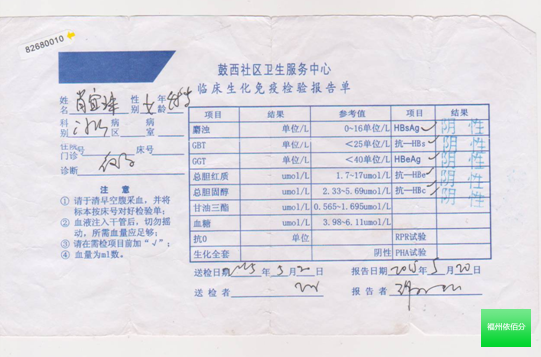 82680010
鼓西社区卫生服务中心
临床生化免疫检验报告单
姓名 性别 女 年龄
科别 病区 病室
住院号 门诊 床号
诊断
注 意
① 请于清早空腹采血，并将标本按床号对好检验单；
② 血液注入干管后，切勿摇动，所需血量应足够；
③ 请在需检项目前加“√”；
④ 血量为ml数。
项目 结果 参考值 项目 结果
麝浊 单位/L 0~16单位/L HBsAg 阴性
GBT 单位/L <25单位/L 抗—HBs 阴性
GGT 单位/L <40单位/L HBeAg 阴性
总胆红质 umol/L 1.7-17umol/L 抗—HBe 阴性
总胆固醇 umol/L 2.33~5.69umol/L 抗—HBc 阴性
甘油三酯 umol/L 0.565-1.695umol/L
血糖 umol/L 3.98~6.11umol/L
抗0 单位 RPR试验
生化全套 阴性 PHA试验
送检日期 年 月 日 报告日期 2015年5月20日
送检者 报告者
福州依佰分